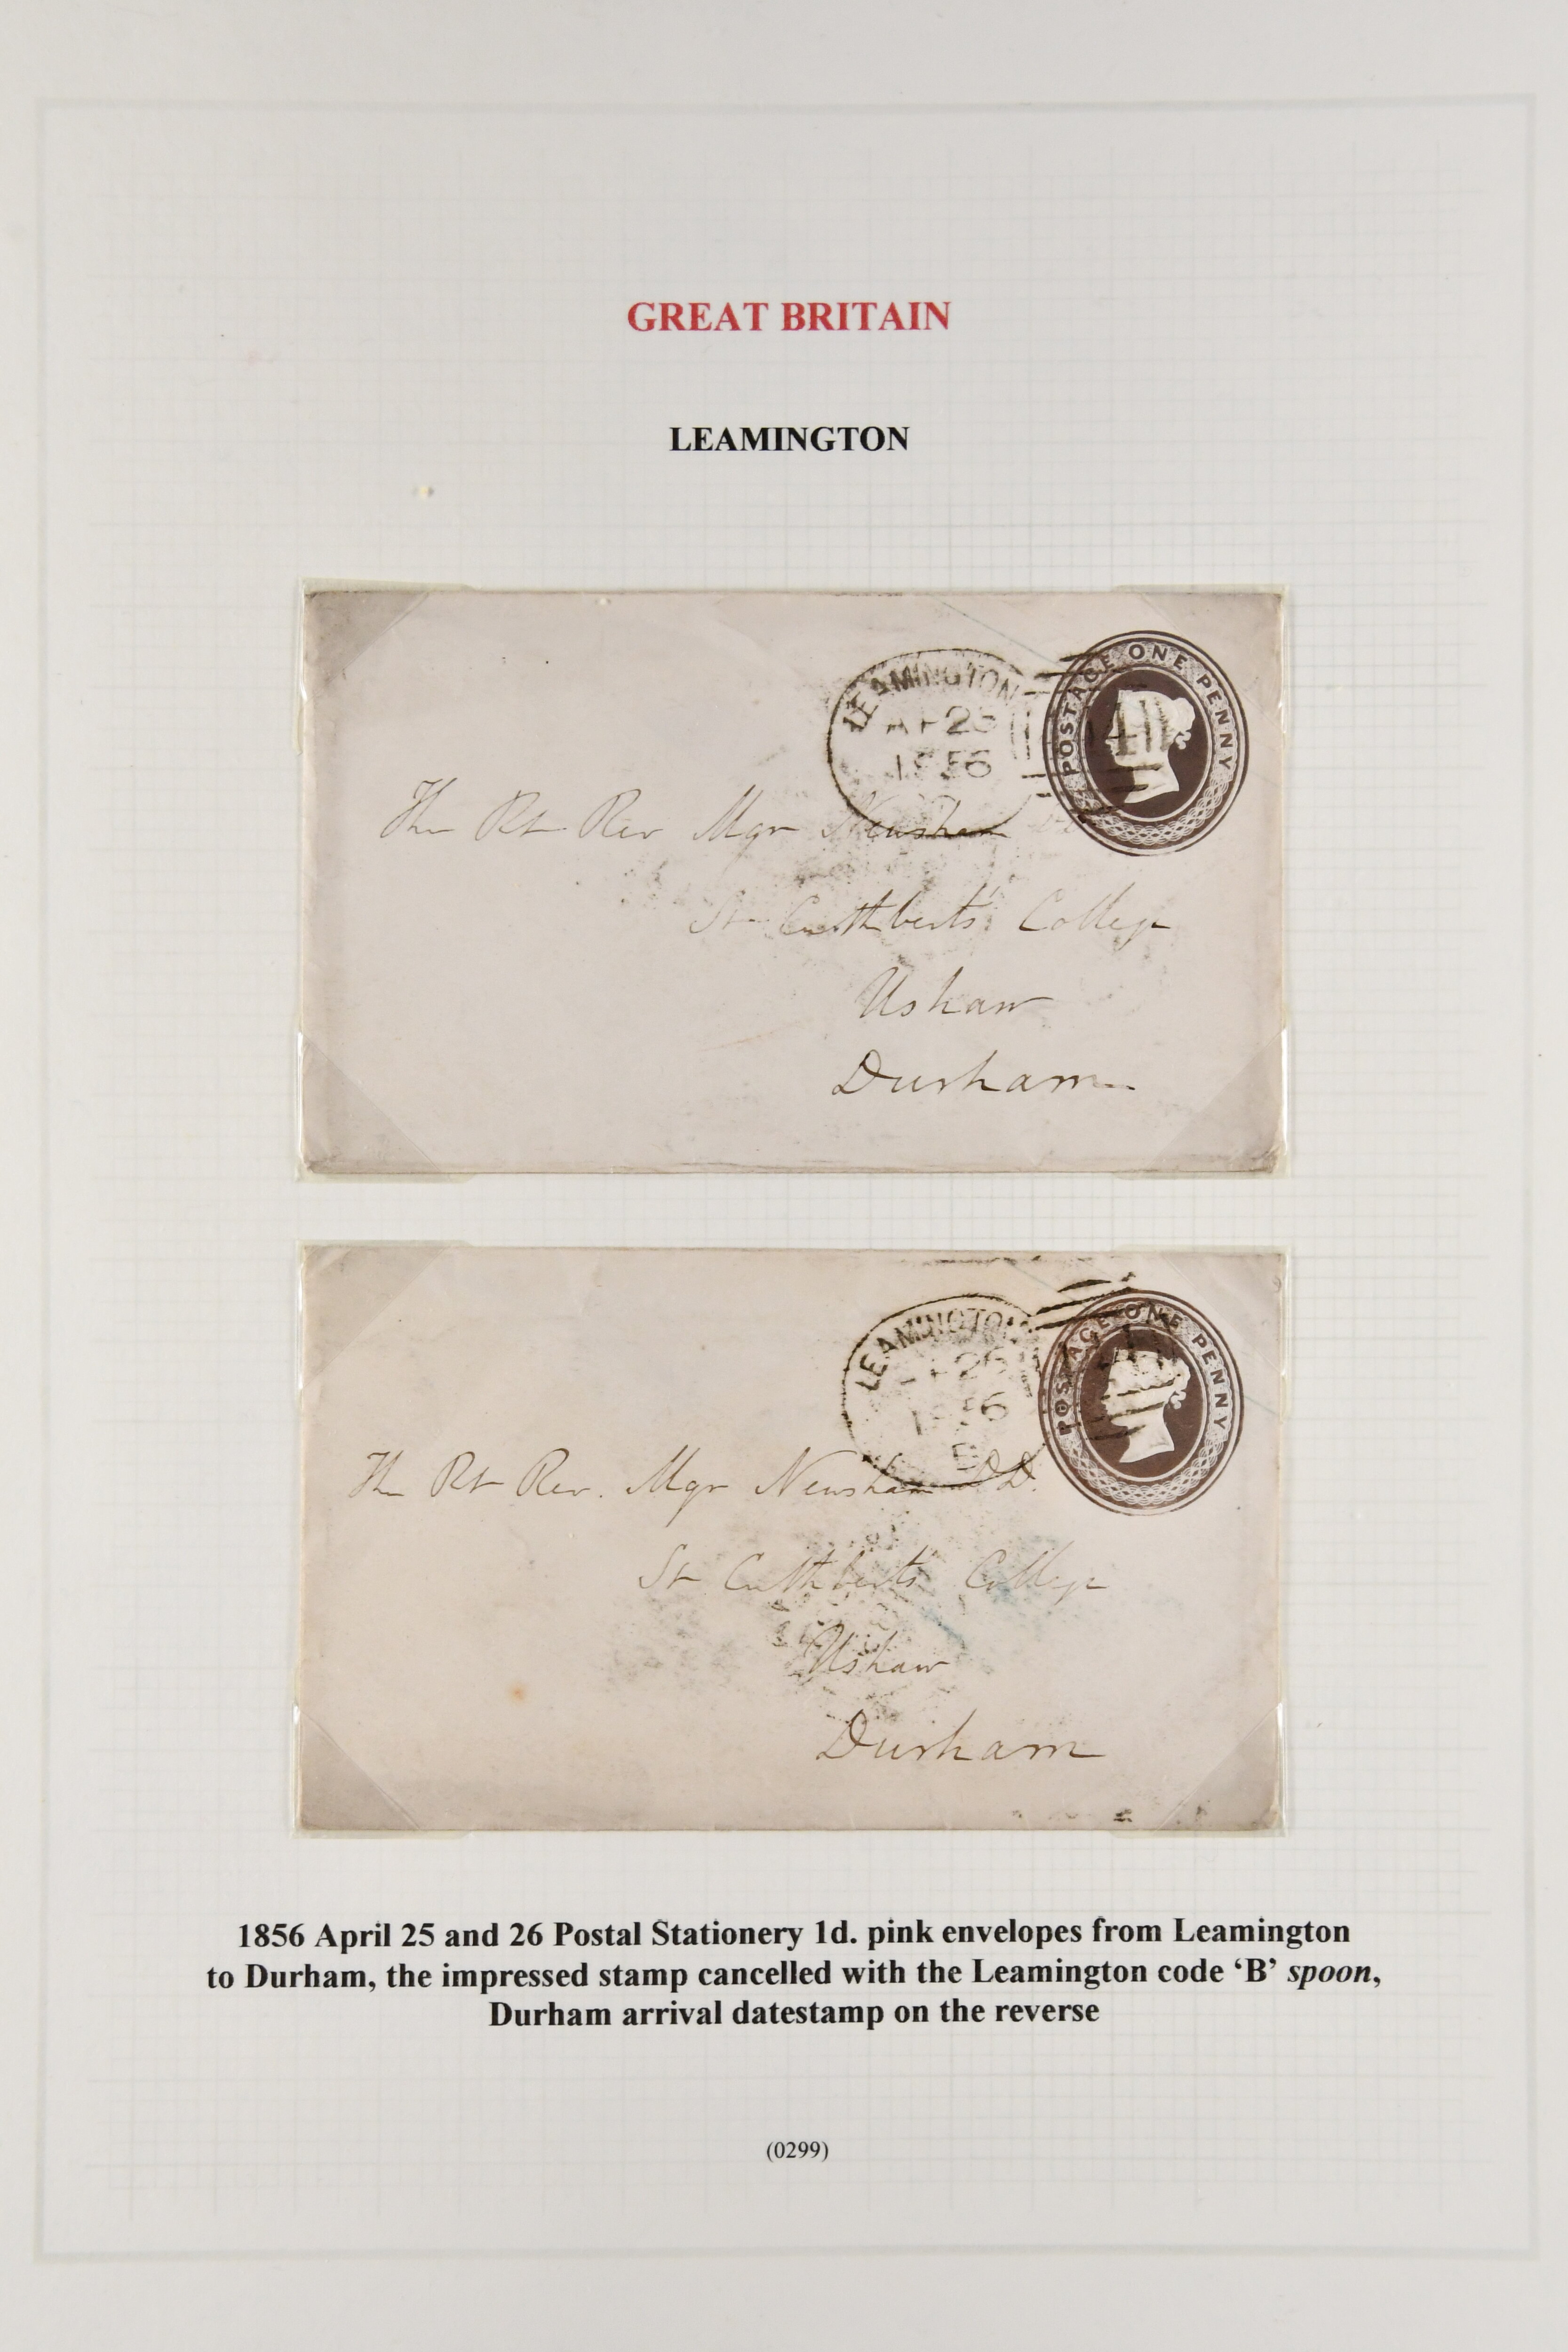 GREAT BRITAIN
LEAMINGTON
LEAMINGTON
AP 25
1856
POSTAGE ONE PENNY
The Rt Rev Mgr Newsham
St Cuthbert's College
Ushaw
Durham
LEAMINGTON
26
1856
B
POSTAGE ONE PENNY
The Rt Rev. Mgr Newsham DD.
St Cuthbert's College
Ushaw
Durham
1856 April 25 and 26 Postal Stationery 1d. pink envelopes from Leamington
to Durham, the impressed stamp cancelled with the Leamington code ‘B’ spoon,
Durham arrival datestamp on the reverse
(0299)